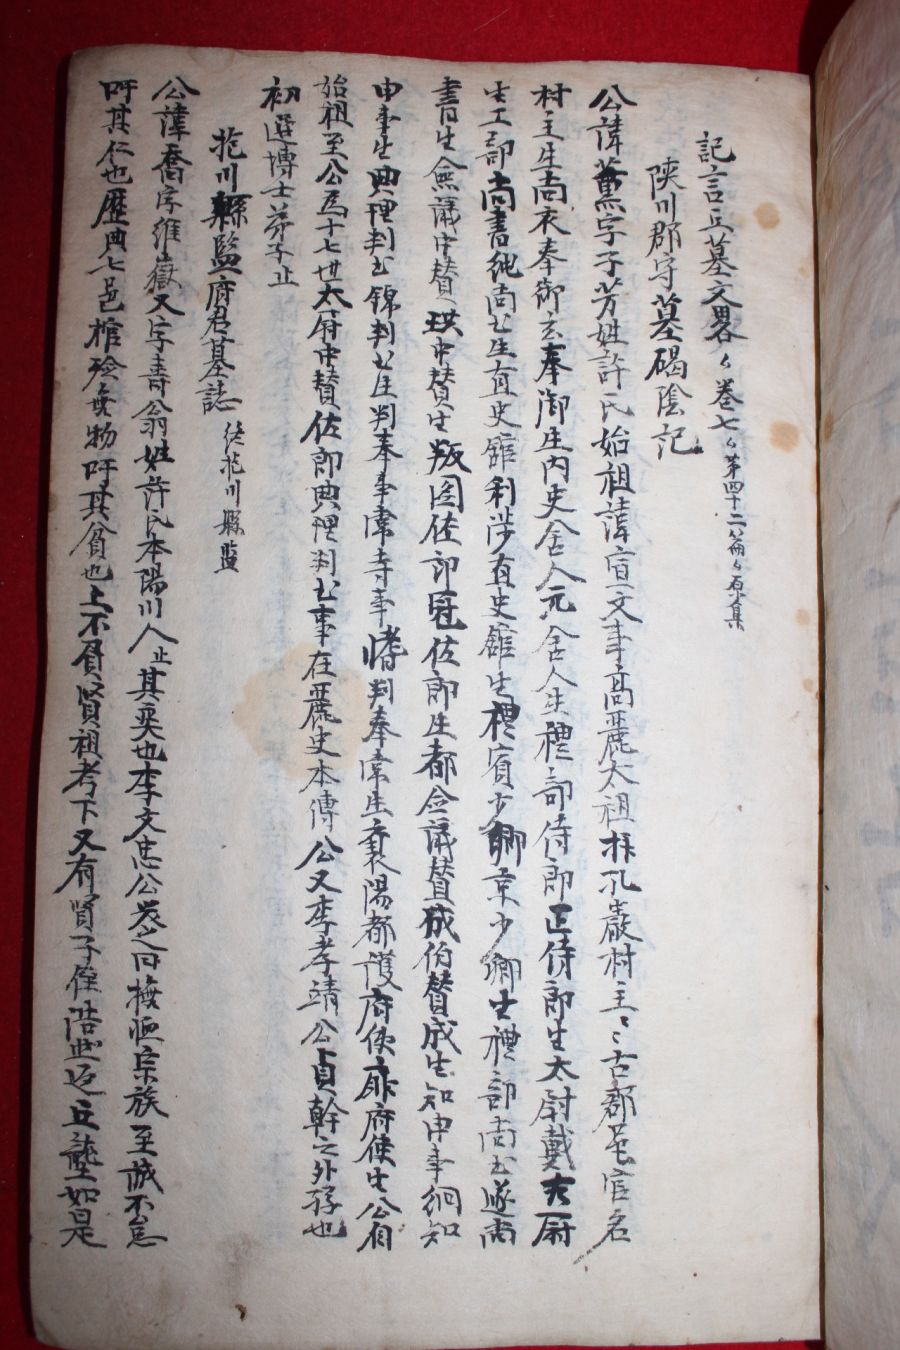 記言丘墓文畧々卷七々第四十二篇々原集
陜川郡守墓碣陰記
公諱薰字子芳姓許氏始祖諱宣文事高麗太祖拜孔巖村主〻古郡邑官名
村主生尚衣奉御玄奉御生內史舍人元舍人生禮部侍郎正侍郎生太尉載太尉
生工部尚書純尚書生直史館利涉直史館生禮賓少卿京少卿生禮部尚書遂尚
書生僉議中贊珙中贊生版圖佐郎冠佐郎生都僉議贊成伯贊成生知申事綱知
申事生典理判書錦判書生判奉常寺事愭判奉常生襄陽都護府使扉府使生公自
始祖至公爲十七世太尉中贊佐郎典理判書事在麗史本傳公又李孝靖公貞幹之外孫也
初選博士弟子止
花川縣監府君墓誌 花川縣監
公諱喬字維嶽又字壽翁姓許氏本陽川人止其奕也李文忠公哭之曰撫恤宗族至誠不怠
吁其仁也歷典七邑棺殮無物吁其貧也上不負賢祖考下又有賢子侄浩然返丘壟如是